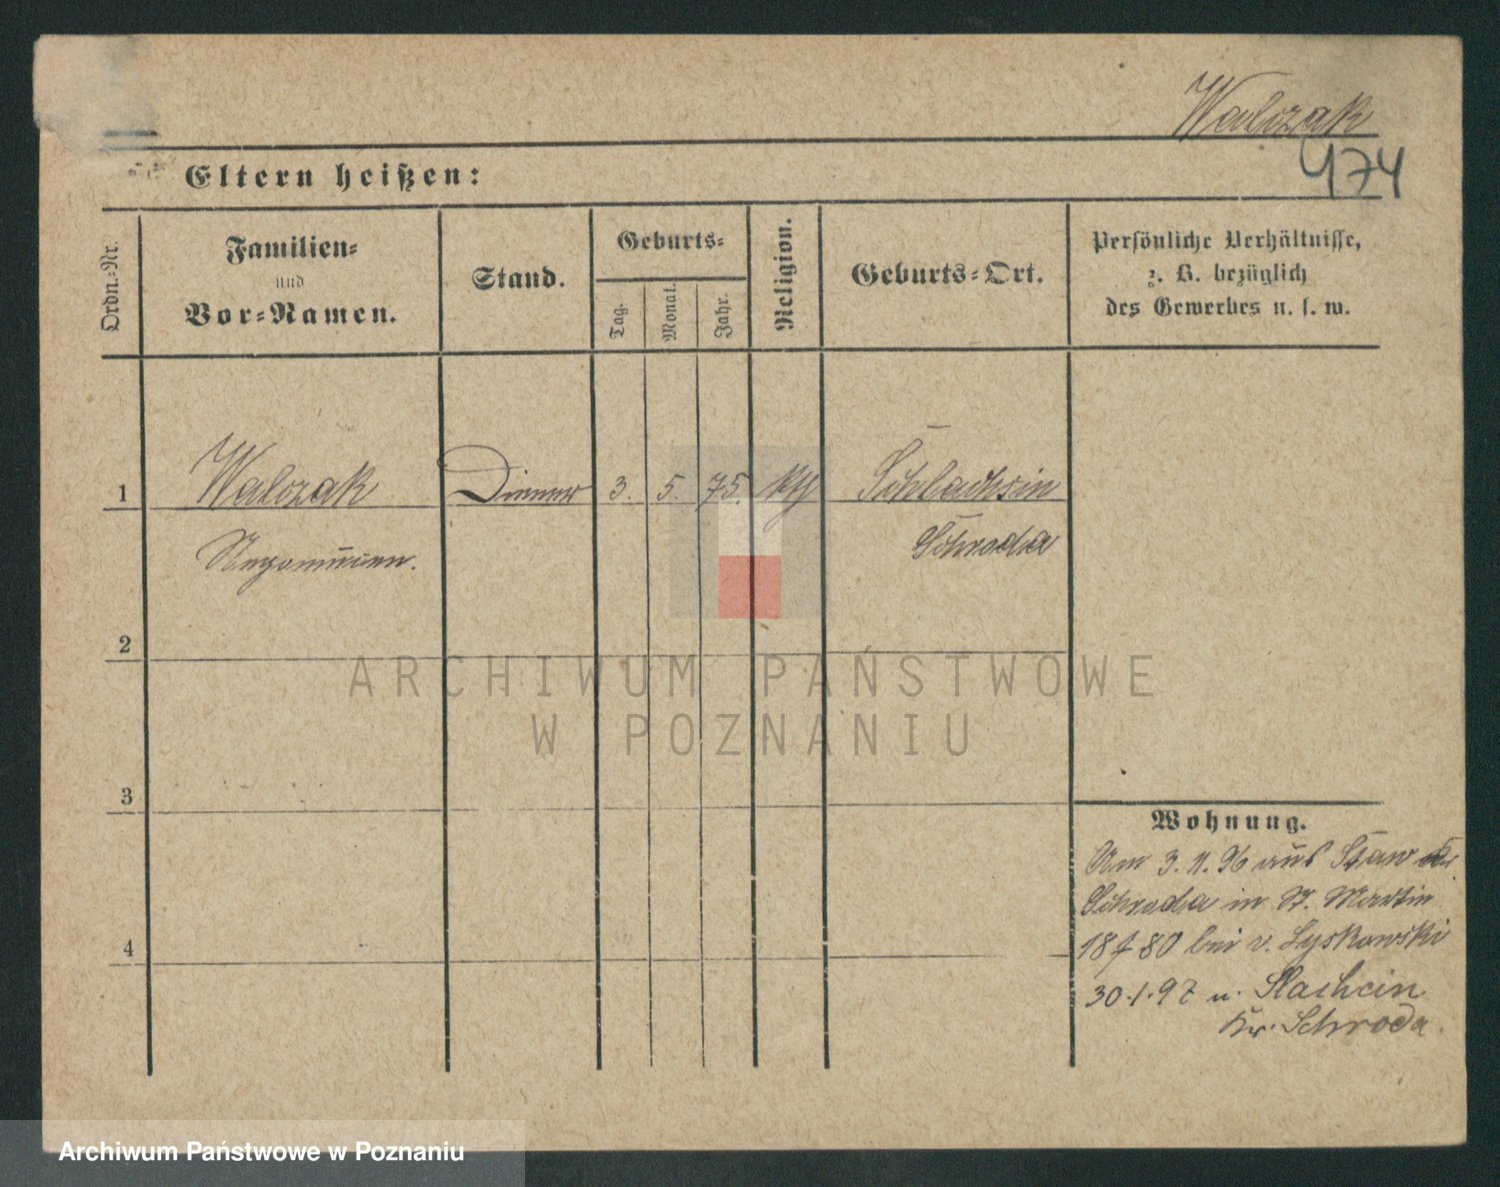 Walczak
474
Eltern heißen:
Ordn.-Nr.
Familien-
und
Vor-Namen.
Stand.
Geburts-
Tag.
Monat.
Jahr.
Religion.
Geburts-Ort.
Persönliche Verhältnisse,
z. B. bezüglich
des Gewerbes u. s. w.
1
Walczak
Diener
3.
5.
75.
kth
Schlachcin
Nepomucen.
Schroda
2
3
4
ARCHIWUM PAŃSTWOWE
W POZNANIU
Wohnung.
Am 3. 4. 96 aus Staw Kr.
Schroda in St. Martin
18 f 80 bei v. Lyskowski
30.1.97 n. Slachcin
Kr. Schroda.
Archiwum Państwowe w Poznaniu